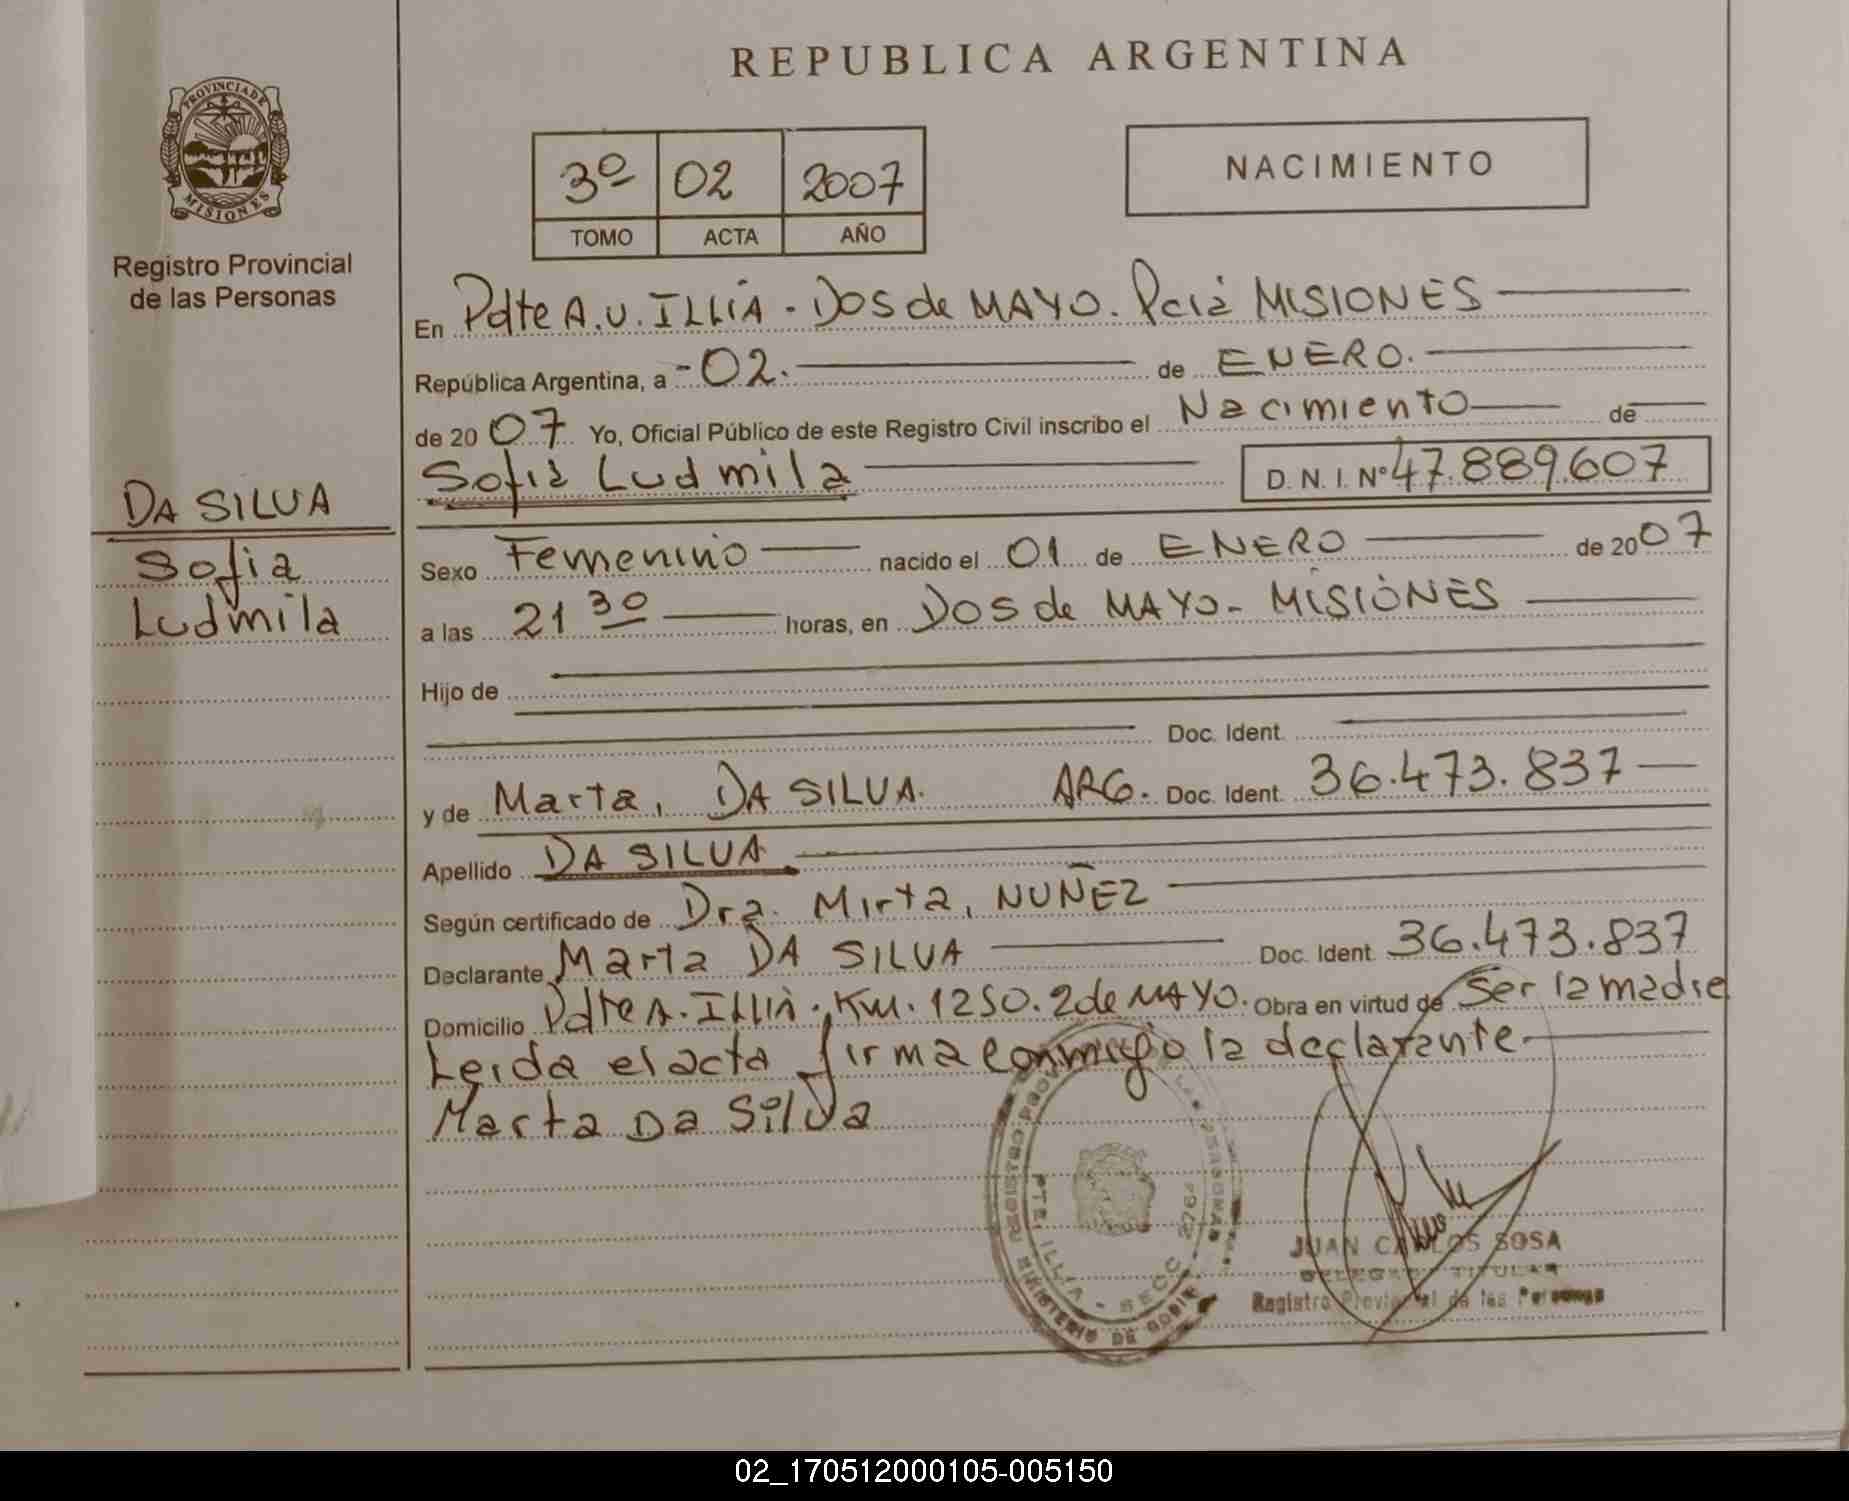 REPUBLICA ARGENTINA
PROVINCIA DE
MISIONES
Registro Provincial
de las Personas
3º 02 2007
TOMO ACTA AÑO
NACIMIENTO
En Pdte A.U. ILLIA - DOS de MAYO. Pcia MISIONES
República Argentina, a -02. de ENERO.
de 2007 Yo, Oficial Público de este Registro Civil inscribo el Nacimiento de
Sofia Ludmila D.N.I. Nº 47.889.607
DA SILVA
Sofia
Ludmila
Sexo Femenino nacido el 01 de ENERO de 2007
a las 21 30 horas, en DOS de MAYO - MISIONES
Hijo de
Doc. Ident.
y de Marta, DA SILVA. ARG. Doc. Ident. 36.473.837
Apellido DA SILVA
Según certificado de Dra. Mirta, NUÑEZ
Declarante Marta DA SILVA Doc. Ident. 36.473.837
Domicilio Pdte A. Illia. Km. 1250. 2 de MAYO. Obra en virtud de Ser la madre
Leida el acta firma conmigo la declarante
Marta Da Silva
PTE. ILLIA - SECC 2972
MINISTERIO DE GOBIE
JUAN CARLOS SOSA
DELEGADO TITULAR
Registro Provincial de las Personas
02_170512000105-005150